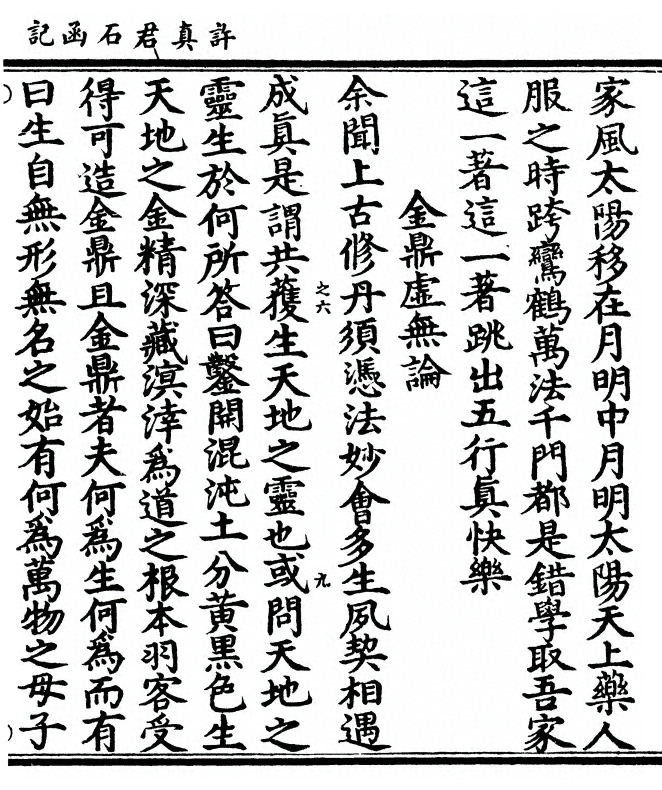 許真君石函記
家風太陽移在月明中月明太陽天上藥人
服之時跨鸞鶴萬法千門都是錯學取吾家
這一著這一著跳出五行眞快樂
金鼎虛無論
余聞上古修丹須憑法妙會多生夙契相遇
成眞是謂共䕶生天地之靈也或問天地之
之六
九
靈生於何所答曰鑿開混沌土分黃黑色生
天地之金精深藏溟涬爲道之根本羽客受
得可造金鼎且金鼎者夫何爲生何爲而有
曰生自無形無名之始有何爲萬物之母子